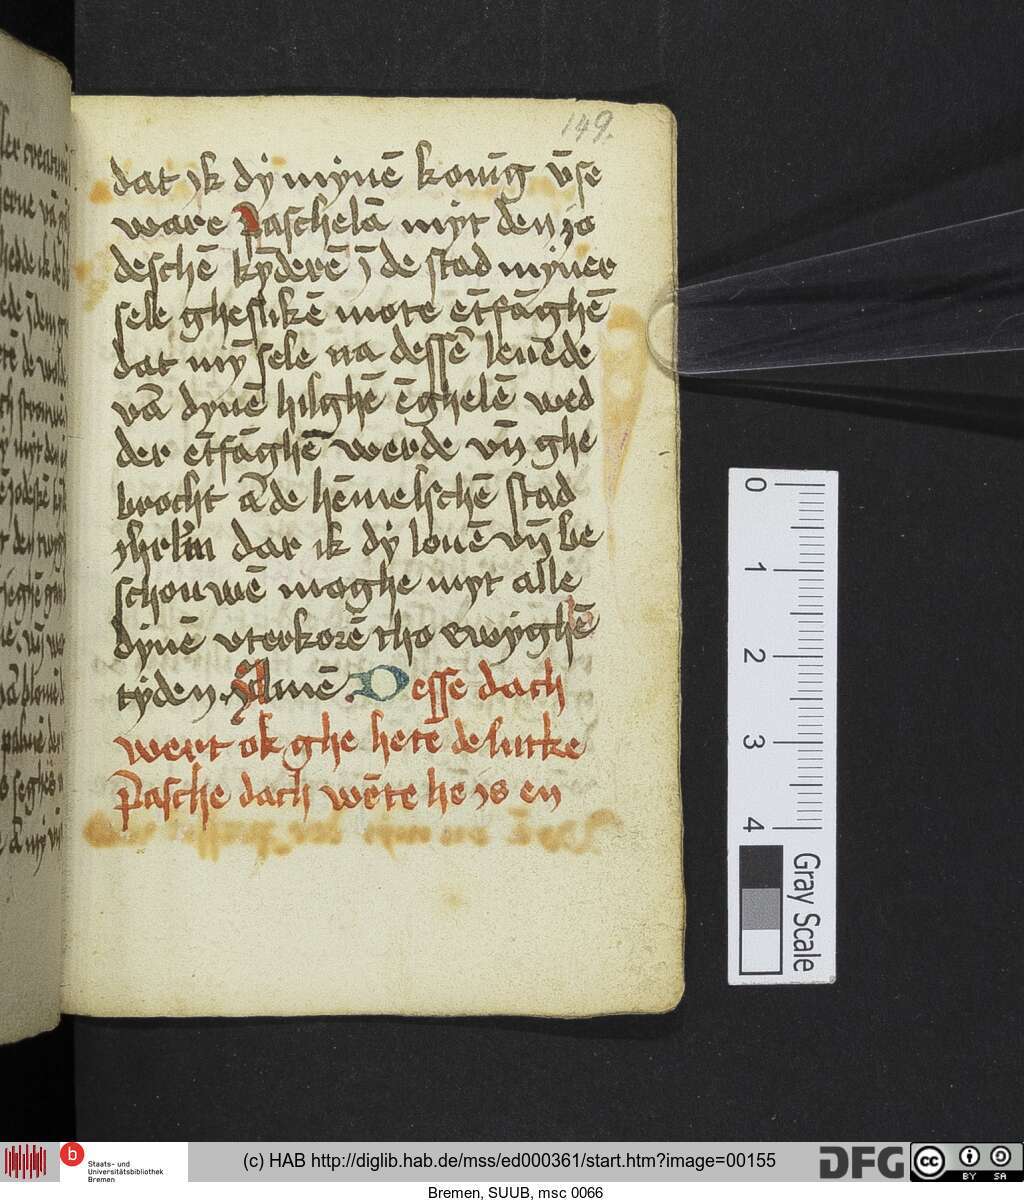 149.
dat ik dy mynē konīg vn̄se
ware Paschelā myt den io
deschē kȳderē ī de stad myner
sele ghestlikē mote ētfāghē
dat my sele na dessē leuēde
vā dynē hilghē ēghelē wed
der ētfāghē werde vn̄ ghe
brocht ā de hēmelschē stad
ihrl'm dar ik dy louē vn̄ be
schouwē moghe myt alle
dynē vterkorē tho ewyghē
tyden. Amē. Desse dach
wert ok ghe hetē de lutke
Pasche dach wēte hē is en
0
1
2
3
4
Gray Scale
b Staats- und
Universitätsbibliothek
Bremen
(c) HAB http://diglib.hab.de/mss/ed000361/start.htm?image=00155
DFG
cc BY SA
Bremen, SUUB, msc 0066